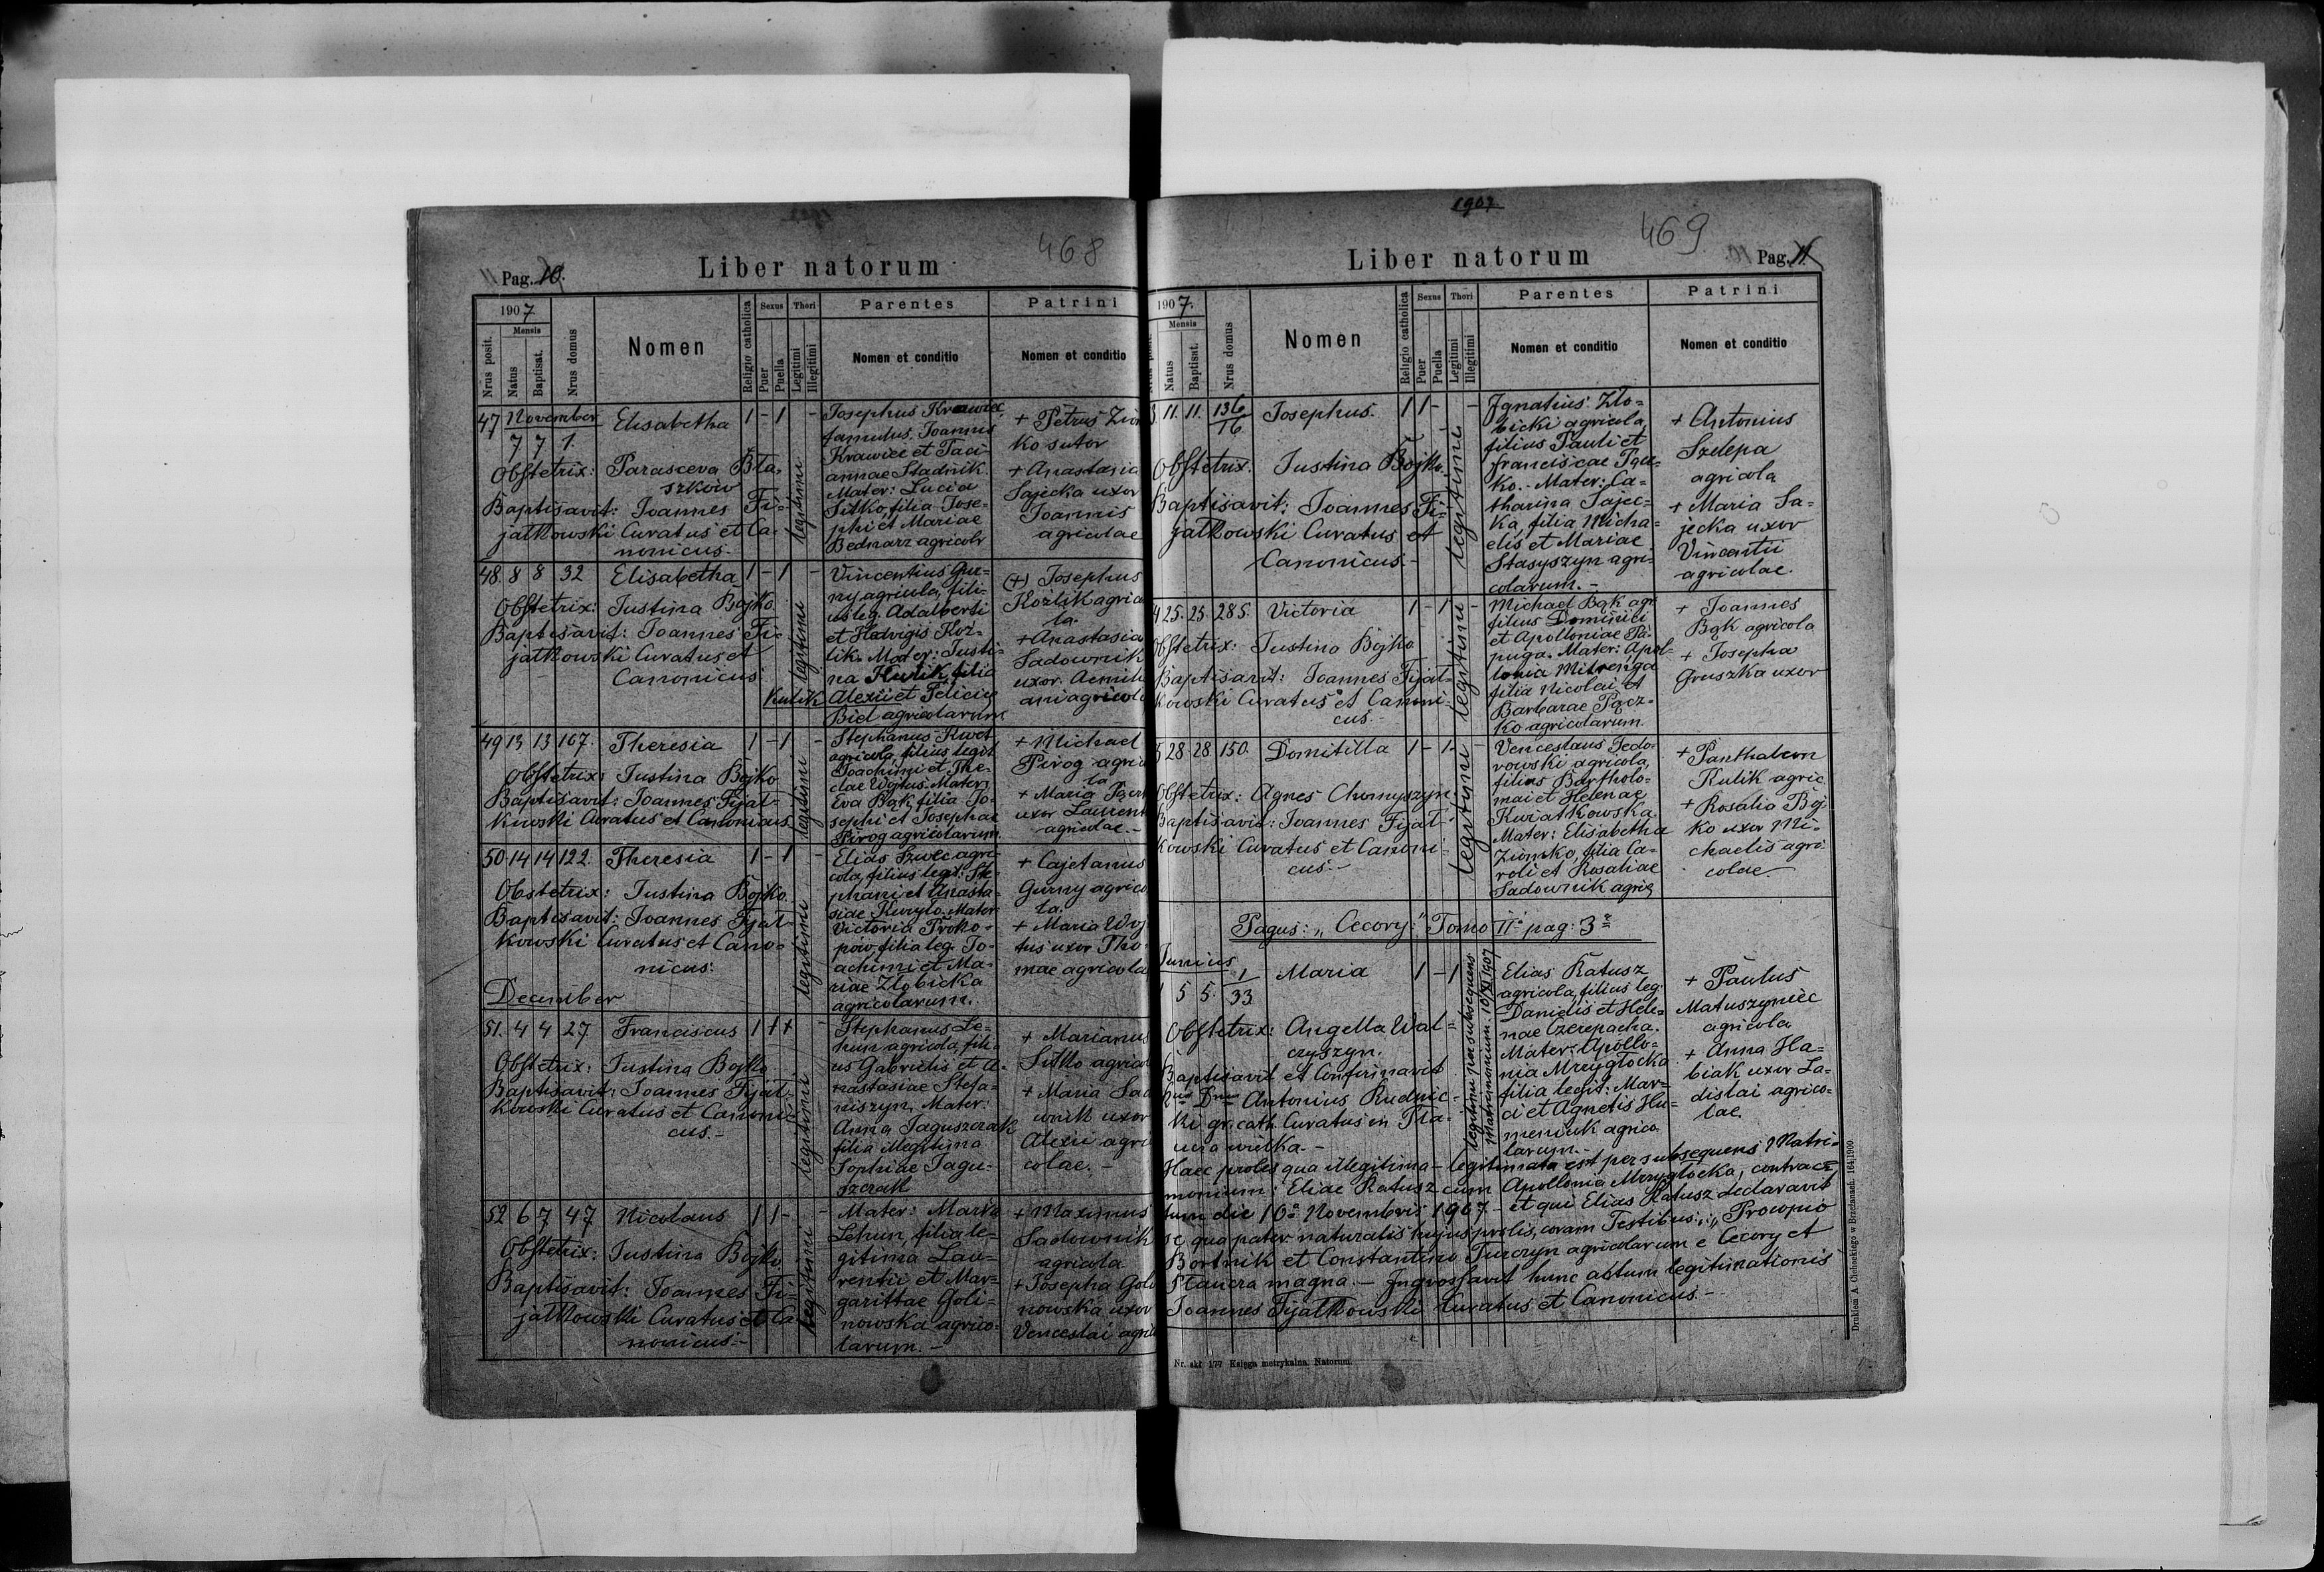 468
Pag. 10.
Liber natorum
1907
Mensis
Nrus posit.
Natus
Baptisat.
Nrus domus
Nomen
Religio catholica
Sexus
Puer
Puella
Thori
Legitimi
Illegitimi
Parentes
Nomen et conditio
Patrini
Nomen et conditio
47 November Elisabetha 1 - 1 -
7 7 1.
Obstetrix: Parasceva Bla-
szków
Baptisavit: Joannes Fi-
jałkowski Curatus et Ca-
nonicus.-
legitimi
Josephus Krawiec,
famulus, Joannis
Krawiec et Taci-
annae Stadnik.
Mater: Lucia
Sitko, filia Jose-
phi et Mariae
Bednarz agricolr
+ Petrus Zion
ko sutor
+ Anastasia
Sajecka uxor
Joannis
agricolae
48. 8 8 32 Elisabetha 1 - 1 -
Obstetrix: Justina Bojko.
Baptisavit: Joannes Fi-
jałkowski Curatus et
Canonicus:
legitimi
Vincentius Gur-
ny agricola, fili-
us leg. Adalberti
et Hedvigis Koż-
lik. Mater: Justi-
na Kulik, filia
Kulik Alexii et Feliciae
Biel agricolarum
(+) Josephus
Koźlik agrico
la.
+ Anastasia
Sadownik
uxor Aemili
ani agricol
49 13 13 107. Theresia 1 - 1 -
Obstetrix: Justina Bojko
Baptisavit: Joannes Fijał-
kowski Curatus et Canonicus
legitimi
Stephanus Kwet
agricola, filius legit
Joachimi et The-
clae Wojtus. Mater:
Eva Bąk, filia Jo-
sephi et Josephae
Pirog agricolarum.
+ Michael
Pirog agric
la
+ Maria
uxor Laurent
agricolae.-
50 14 14 122. Theresia 1 - 1 -
Obstetrix: Justina Bojko.
Baptisavit: Joannes Fijał-
kowski Curatus et Cano-
nicus:
legitimi
Elias Szwec agri-
cola, filius legit: Ste-
phani et Anasta-
siae Kuryło. Mater
Victoria Proko-
pów, filia leg. Jo-
achimi et Ma-
riae Złobicka
agricolarum.
+ Cajetanus
Gurny agrico
la.
+ Maria Woj
tus uxor Tho-
mae agricola
December
51. 4 4 27 Franciscus 1 + + -
Obstetrix: Justina Bojko.
Baptisavit: Joannes Fijał-
kowski Curatus et Canoni-
cus.-
legitimi
Stephanus Le-
hun agricola, fili-
us Gabrielis et A-
nastasiae Stefa-
niszyn. Mater:
Anna Jaguszczak
filia illegitima
Sophiae Jagu-
szczak
+ Marianus
Sitko agricol
+ Maria Sad
ownik uxor
Alexii agri
colae.-
52 6 7 47 Nicolaus 1 1 - -
Obstetrix: Justina Bojko
Baptisavit: Joannes Fi-
jałkowski Curatus et Ca-
nonicus.-
Mater: Maria
Lehun, filia le-
gitima Lau-
rentii et Mar-
garittae Goli-
nowska agrico-
larum.-
+ Maximus
Sadownik
agricola
+ Josepha Goli
nowska uxor
Venceslai agric
1907
469
Liber natorum
Pag. 11
1907.
Mensis
Natus
Baptisat.
Nrus domus
Nomen
Religio catholica
Sexus
Puer
Puella
Thori
Legitimi
Illegitimi
Parentes
Nomen et conditio
Patrini
Nomen et conditio
3 11. 11. 136/16 Josephus. 1 1 - -
Obstetrix. Justina Bojko.
Baptisavit: Joannes Fi-
jałkowski Curatus et
Canonicus.-
legitimi
Ignatius Zło-
bicki agricola,
filius Pauli et
Franciscae Pąc-
ko.- Mater: Ca-
tharina Sajec-
ka, filia Micha-
elis et Mariae
Stasyszyn agri-
colarum.-
+ Antonius
Szelepa
agricola
+ Maria Sa-
jecka uxor
Vincentii
agricolae.
4 25. 25. 285. Victoria 1 - 1 -
Obstetrix: Justina Bojko
Baptisavit: Joannes Fijał-
kowski Curatus et Canoni-
cus.-
legitimi
Michael Bąk agr
filius Dominici
et Apolloniae Pa-
puga. Mater: Apol-
lonia Mitrenga
filia Nicolai et
Barbarae Pącz-
ko agricolarum.
+ Joannes
Bąk agricola
+ Josepha
Gruszka uxor
5 28 28. 150. Domitilla 1 - 1 -
Obstetrix: Agnes Churnyszyn
Baptisavit: Joannes Fijał-
kowski Curatus et Canoni-
cus.-
legitimi
Venceslaus Fedo-
rowski agricola,
filius Bartholo-
maei et Helenae
Kwiatkowska.
Mater: Elisabetha
Zionko, filia Ca-
roli et Rosaliae
Sadownik agric
+ Panthaleon
Kulik agric
+ Rosalia Boj
ko uxor Mi-
chaelis agri-
colae
Pagus: "Cecory:" Tomo II pag: 3
Junius
1 5 5. 1/33 Maria 1 - 1
Obstetrix: Angella Wal-
czyszyn.
Baptisavit et Confirmavit
Antonius Rudnic-
ki gr.cath. Curatus in Pła-
ucia wielka.-
legitimi per subsequens
Matrimonium. 10/XI 1907
Elias Ratusz
agricola, filius leg.
Danielis et Hele-
nae Czerepacha.
Mater: Apollo-
nia Mrzygłocka
filia legit: Mar-
ci et Agnetis Hu-
meniuk agrico
larum.-
+ Paulus
Matuszyniec
agricola
+ Anna Ha-
biak uxor La-
dislai agrico-
lae.
Haec proles qua illegitima - legitimata est per subsequens Matri-
monium: Eliae Ratusz cum Apollonia Mrzygłocka, contrac-
tum die 10a Novembris 1907 - et qui Elias Ratusz declaravit
se qua pater naturalis hujus prolis, coram Testibus: Procopio
Bortnik et Constantino Turczyn agricolarum e Cecory et
Plaucza magna.- Ingrossavit hunc actum legitimationis
Joannes Fijałkowski Curatus et Canonicus.-
Nr. skł 177 Księga metrykalna. Natorum.
Drukiem A. Cichockiego w Brzeżanach. 164|1900